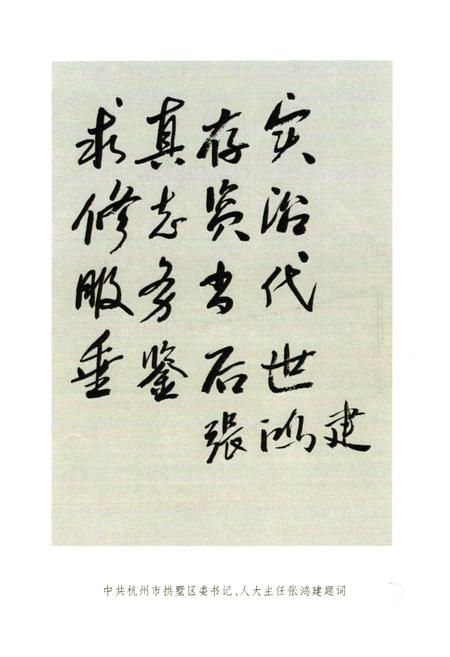 求真存实
修志资治
服务当代
垂鉴后世
张鸿建
中共杭州市拱墅区委书记、人大主任张鸿建题词